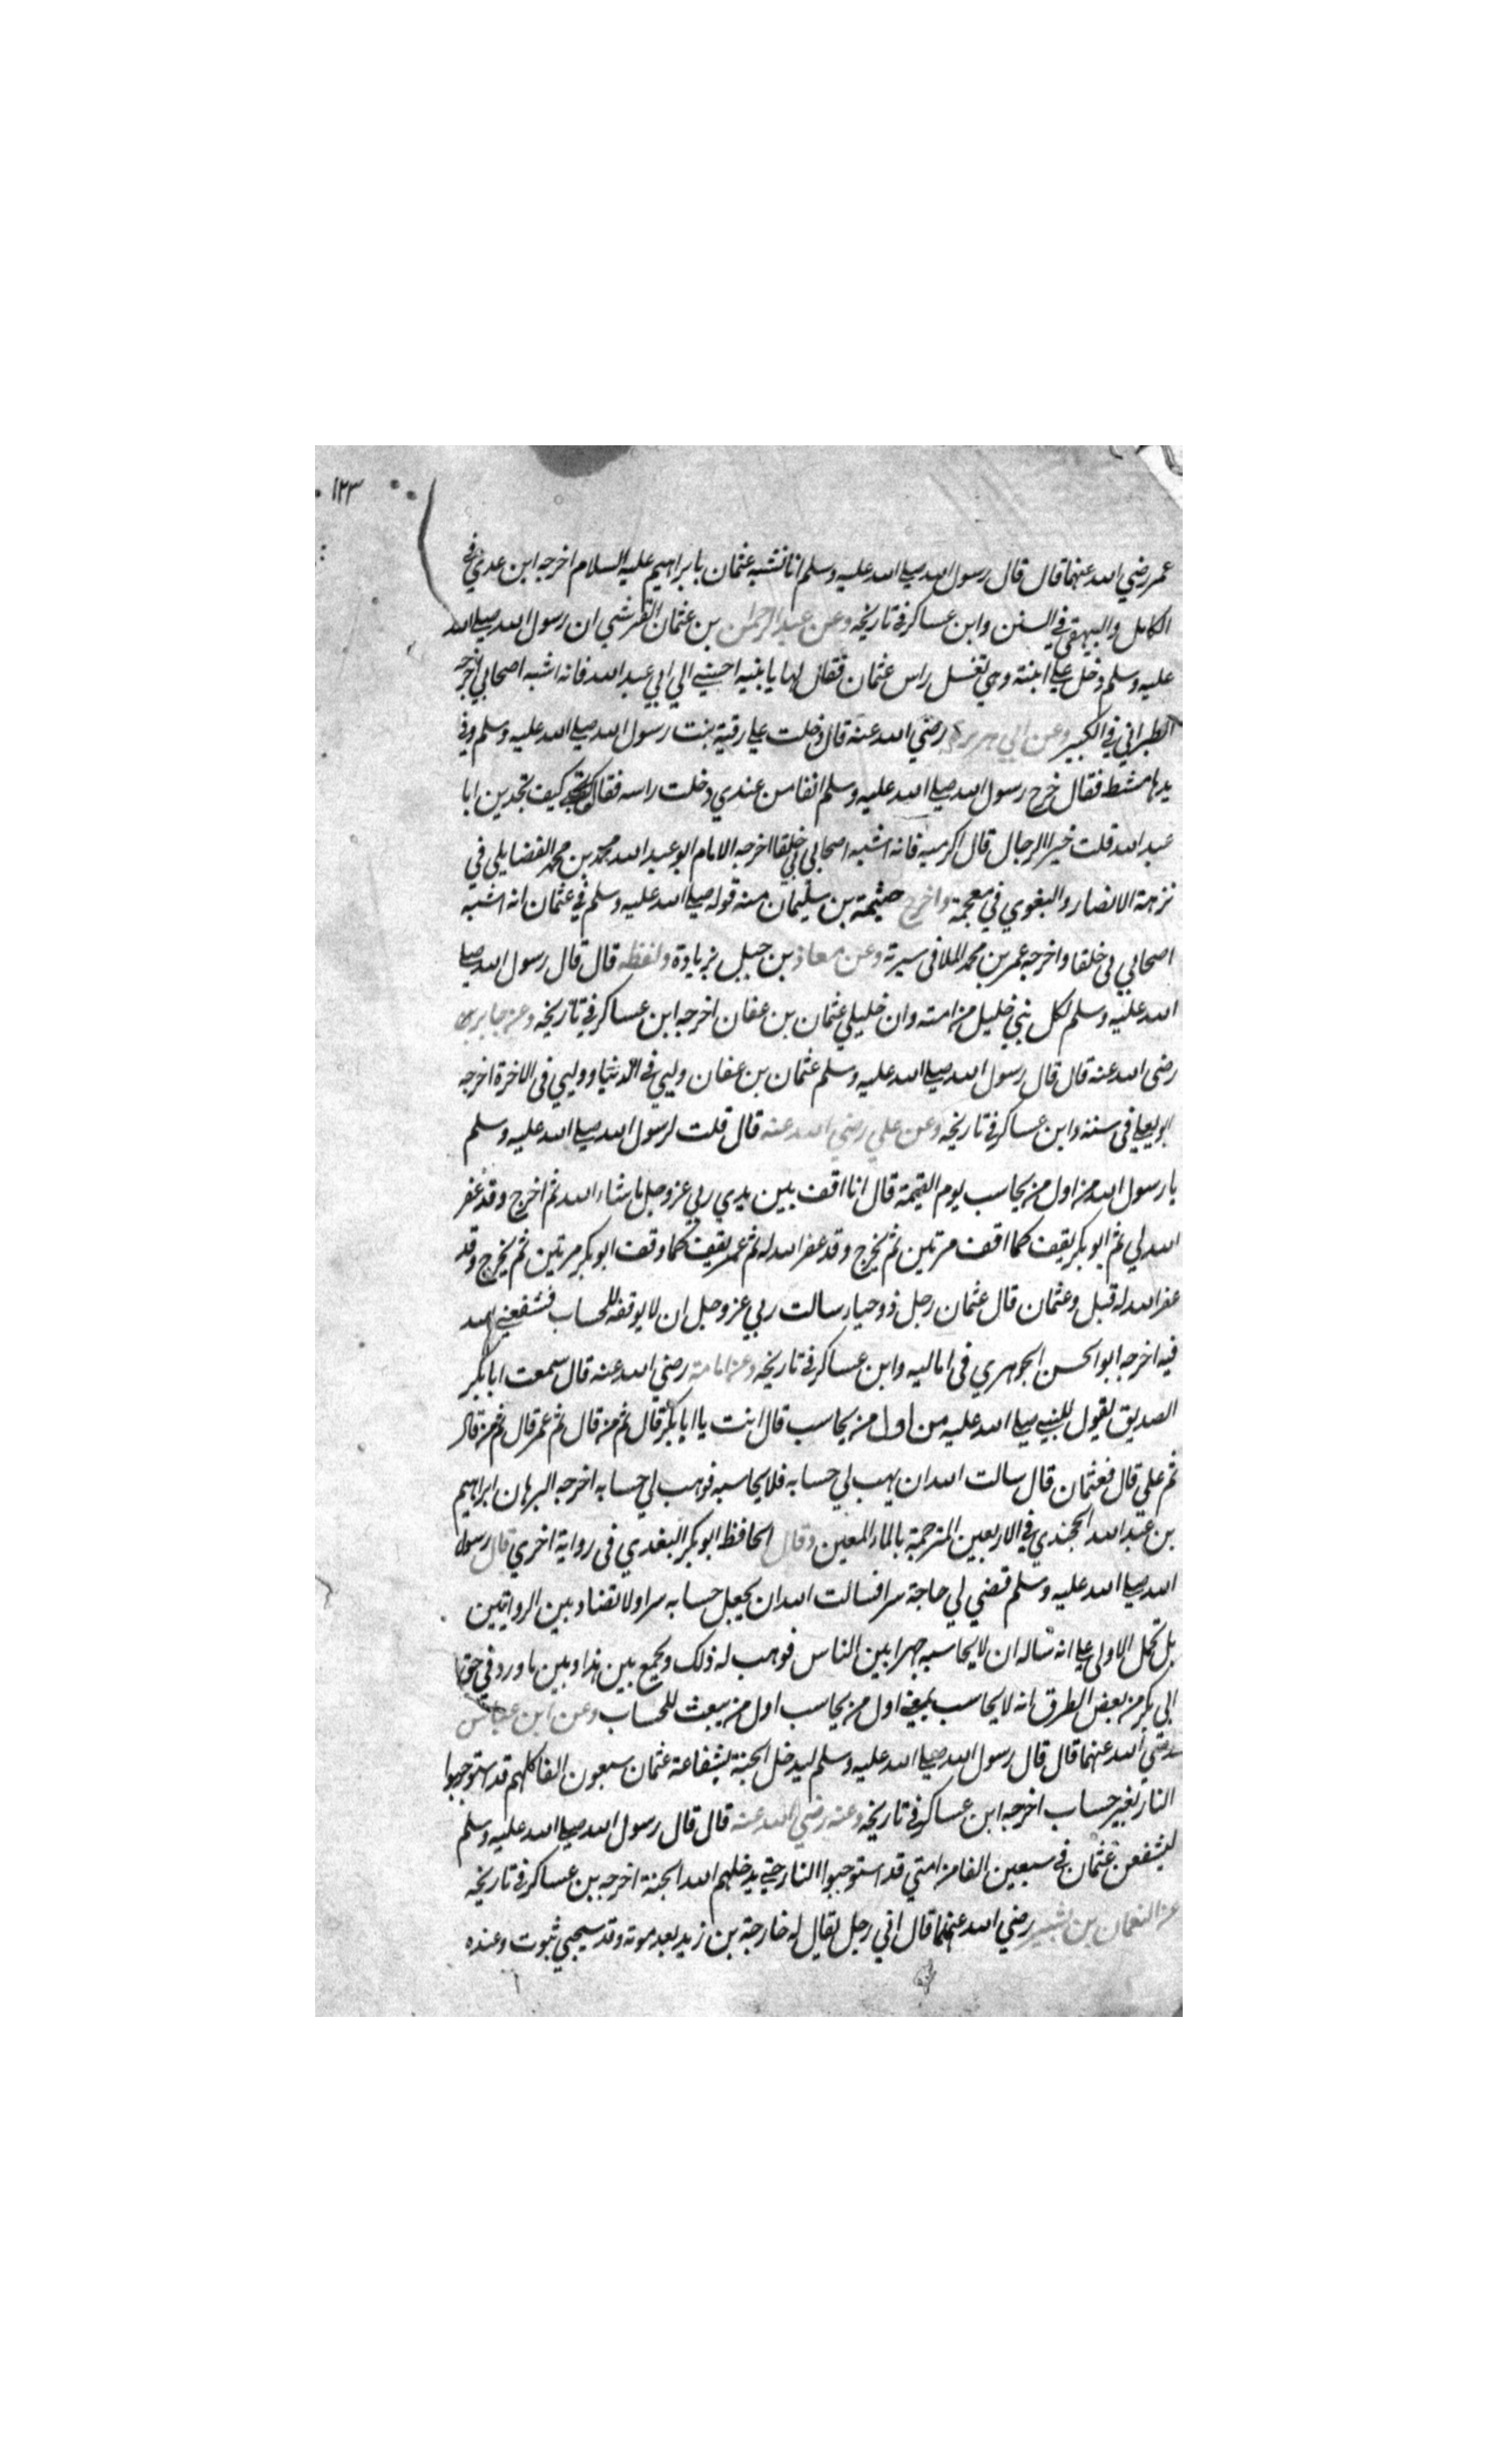 ١٢٣
عمر رضي الله عنهما قال قال رسول الله صلى الله عليه وسلم انا نشبه عثمان بابراهيم عليه السلام اخرجه ابن عدي في
الكامل والبيهقي في السنن وابن عساكر في تاريخه وعن عبد الرحمن بن عثمان القرشي ان رسول الله صلى الله
عليه وسلم دخل على ابنته وهي تغسل راس عثمان فقال لها يا بنيه احسني الي ابي عبد الله فانه اشبه اصحابي اخرجه
الطبراني في الكبير وعن ابي هريرة رضي الله عنه قال دخلت على رقية بنت رسول الله صلى الله عليه وسلم وفي
يدها مشط فقال خرج رسول الله صلى الله عليه وسلم انفا من عندي دخلت راسه فقال كيف تجدين ابا
عبد الله قلت خير الرجال قال اكرميه فانه اشبه اصحابي بي خلقا اخرجه الامام ابو عبد الله محمد بن محمد الفضايلي في
نزهة الانصار والبغوي في معجمة واخرج خثيمة بن سليمان منه قوله صلى الله عليه وسلم في عثمان انه اشبه
اصحابي بي خلقا واخرجه عمر بن محمد الملا في سيرته وعن معاذ بن جبل بزيادة ولفظه قال قال رسول الله صلى
الله عليه وسلم لكل نبي خليل من امته وان خليلي عثمان بن عفان اخرجه ابن عساكر في تاريخه وعن جابر
رضى الله عنه قال قال رسول الله صلى الله عليه وسلم عثمان بن عفان وليي في الدنيا ووليي في الاخرة اخرجه
ابو يعلى في سننه وابن عساكر في تاريخه وعن علي رضي الله عنه قال قلت لرسول الله صلى الله عليه وسلم
يا رسول الله من اول من يحاسب يوم القيمة قال انا اقف بين يدي ربي عز وجل ما شاء الله ثم اخرج وقد غفر
الله لي ثم ابو بكر يقف كما اقف مرتين ثم يخرج وقد غفر الله له ثم عمر يقف كما وقف ابو بكر مرتين ثم يخرج وقد
غفر الله له قيل وعثمان قال عثمان رجل ذو حياء سالت ربي عز وجل ان لا يوقفه للحساب فشفعني الله
فيه اخرجه ابو الحسن الجوهري في اماليه وابن عساكر في تاريخه وعن امامة رضي الله عنه قال سمعت ابا بكر
الصديق يقول للنبي صلى الله عليه من اول من يحاسب قال انت يا ابا بكر قال ثم من قال ثم عمر قال ثم من قال
ثم علي قال فعثمان قال سالت الله ان يهب لي حسابه فلا يحاسبه فوهب لي حسابه اخرجه البرهان ابراهيم
بن عبد الله الخجندي في الاربعين المترجمة بالماء المعين وقال الحافظ ابو بكر البغدي في رواية اخري قال رسول
الله صلى الله عليه وسلم قضي لي حاجة سرا فسالت الله ان يجعل حسابه سرا ولا تضاد بين الروايتين
بل تحمل الاولى على انه ساله ان لا يحاسبه جهرا بين الناس فوهب له ذلك ويجمع بين هذا وبين ما ورد في حق
ابي بكر من بعض الطرق انه لا يحاسب بمعنى اول من يحاسب اول من يبعث للحساب وعن ابن عباس
رضي الله عنهما قال قال رسول الله صلى الله عليه وسلم ليدخل الجنة بشفاعة عثمان سبعون الفا كلهم قد استوجبوا
النار بغير حساب اخرجه ابن عساكر في تاريخه وعنه رضي الله عنه قال قال رسول الله صلى الله عليه وسلم
ليشفعن عثمان في سبعين الفا من امتي قد استوجبوا النار حتى يدخلهم الله الجنة اخرجه بن عساكر في تاريخه
عن النعمان بن بشير رضي الله عنهما قال اني رجل يقال له خارجة بن زيد بعد موته وقد سجي بثبوت وعنده